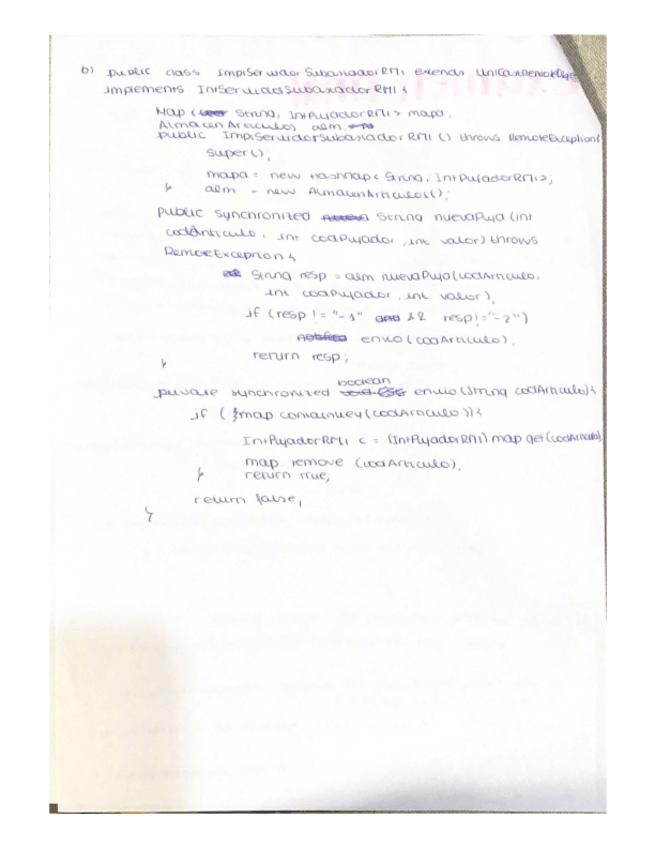 b) public class ImplServidorSubastadorRMI extends UnicastRemoteObje
implements IntServidorSubastadorRMI {
Map < String, IntPujadorRMI> mapa;
AlmacenArticulos alm;
public ImplServidorSubastadorRMI () throws RemoteException{
super();
mapa = new HashMap < String, IntPujadorRMI>;
} alm = new AlmacenArticulos();
public synchronized String nuevaPuja (int
codArticulo, int codPujador, int valor) throws
RemoteException {
String resp = alm nuevaPuja(codArticulo,
int codPujador, int valor);
if (resp != "-1" && resp!="-2")
envio (codArticulo);
return resp;
}
boolean
private synchronized envio (String codArticulo){
if ( map containskey(codArticulo)){
IntPujadorRMI c = (IntPujadorRMI) map get(codArticulo)
map. remove (codArticulo);
} return true;
return false;
}